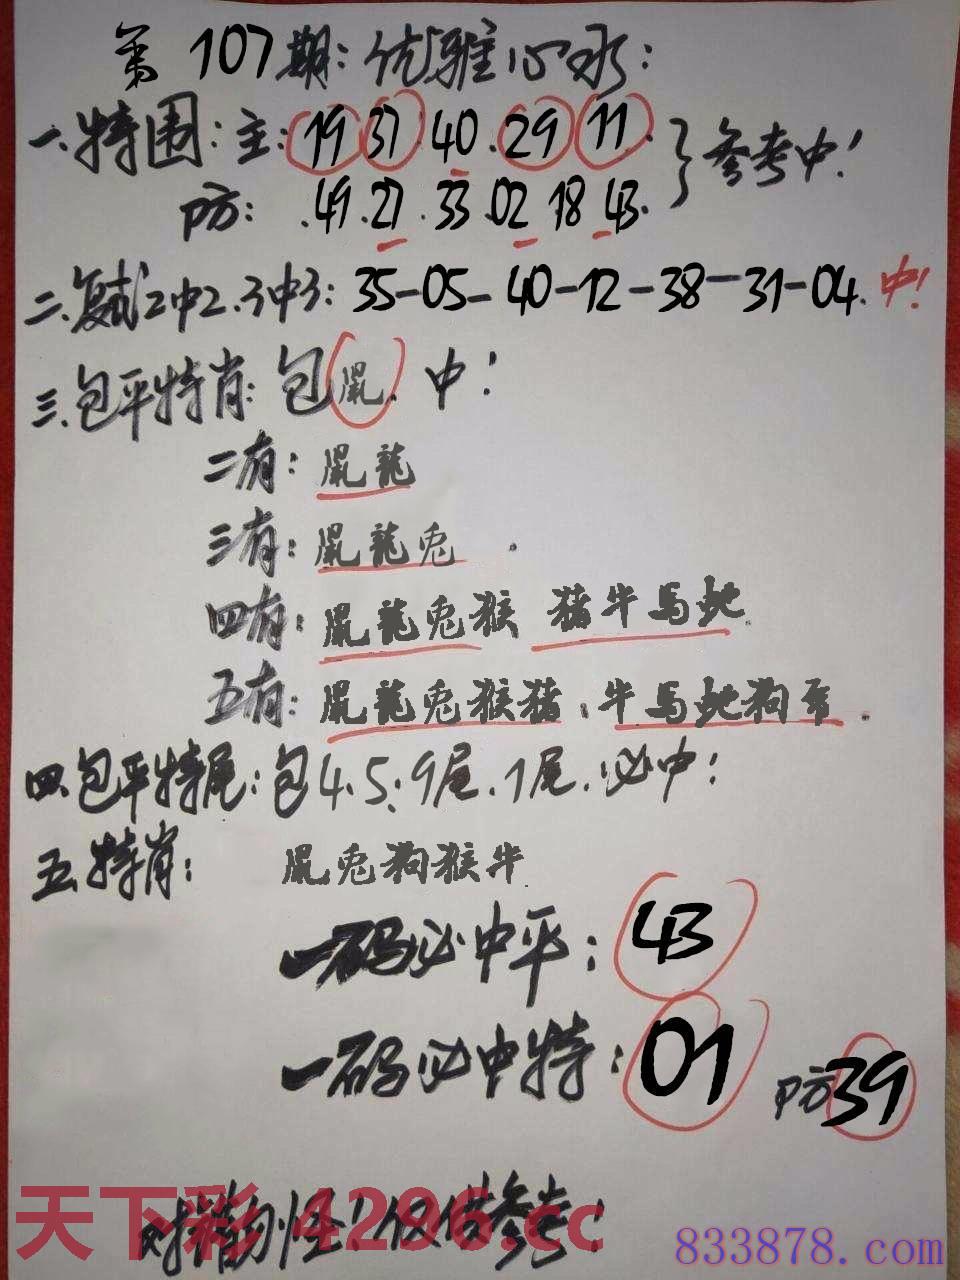 第107期:优雅心水:
一.特围:主:19 37.40.29 11.
防:.49.27.33.02 18 43.
}参考中!
二.复式2中2.3中3:35-05-40-12-38-31-04.中!
三.包平特肖:包鼠.中!
二有:鼠龍
三有:鼠龍兎.
四有:鼠龍兎猴 猪牛马蛇.
五有:鼠龍兎猴猪.牛马蛇狗.
四.包平特尾:包4.5.9尾.1尾.必中:
五.特肖:鼠兎狗猴牛.
一码必中平:43
一码必中特:01 防39
仅供参考!
天下彩 4296.cc
833878.com